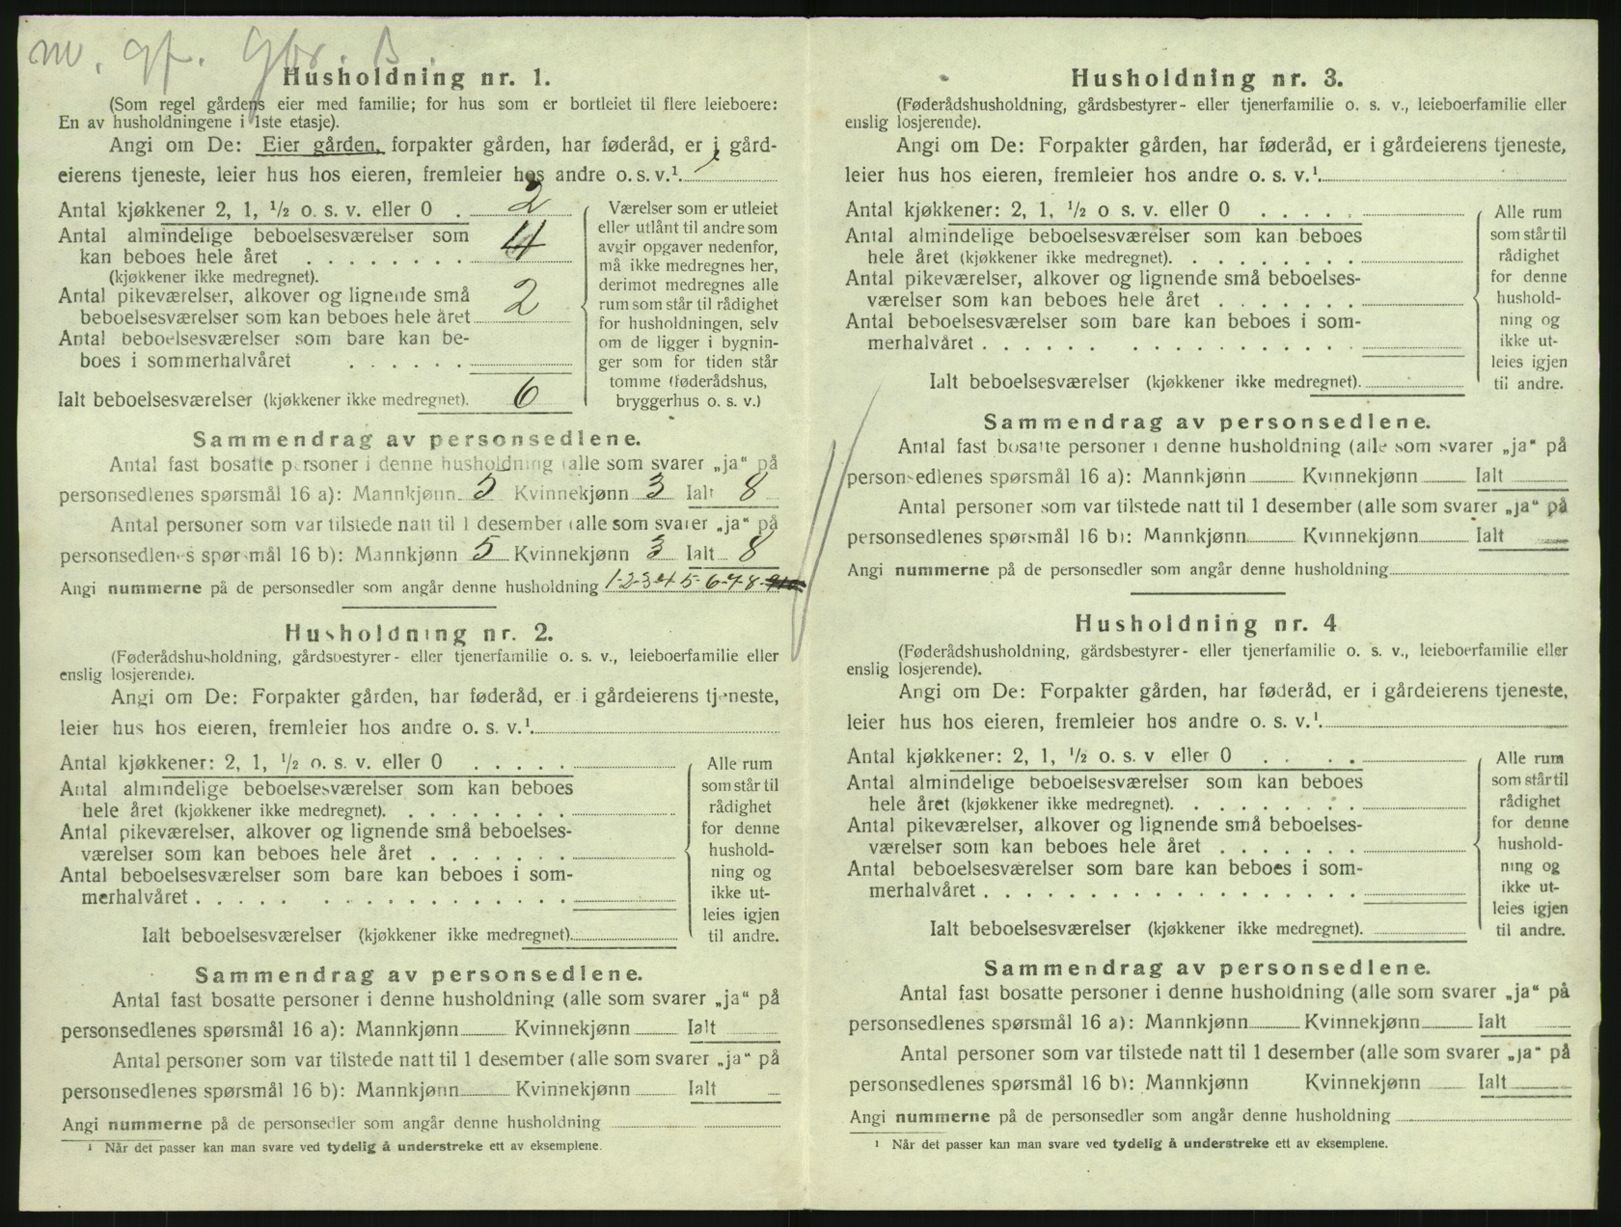 m. gf. Gbr. B.
Husholdning nr. 1.
(Som regel gårdens eier med familie; for hus som er bortleiet til flere leieboere:
En av husholdningene i 1ste etasje).
Angi om De: Eier gården, forpakter gården, har føderåd, er i gård-
eierens tjeneste, leier hus hos eieren, fremleier hos andre o. s. v.¹
Antal kjøkkener 2, 1, ½ o. s. v. eller 0 . 2
Antal almindelige beboelsesværelser som
kan beboes hele året . . . . . . . . 4
(kjøkkener ikke medregnet).
Antal pikeværelser, alkover og lignende små
beboelsesværelser som kan beboes hele året 2
Antal beboelsesværelser som bare kan be-
boes i sommerhalvåret . . . . . .
Ialt beboelsesværelser (kjøkkener ikke medregnet). 6
Værelser som er utleiet
eller utlånt til andre som
avgir opgaver nedenfor,
må ikke medregnes her,
derimot medregnes alle
rum som står til rådighet
for husholdningen, selv
om de ligger i bygnin-
ger som for tiden står
tomme (føderådshus,
bryggerhus o. s. v.)
Sammendrag av personsedlene.
Antal fast bosatte personer i denne husholdning (alle som svarer „ja“ på
personsedlenes spørsmål 16 a): Mannkjønn 5 Kvinnekjønn 3 Ialt 8
Antal personer som var tilstede natt til 1 desember (alle som svarer „ja“ på
personsedlenes spørsmål 16 b): Mannkjønn 5 Kvinnekjønn 3 Ialt 8
Angi nummerne på de personsedler som angår denne husholdning 1-2-3-4-5-6-7-8-
Husholdning nr. 2.
(Føderådshusholdning, gårdsbestyrer- eller tjenerfamilie o. s. v., leieboerfamilie eller
enslig losjerende).
Angi om De: Forpakter gården, har føderåd, er i gårdeierens tjeneste,
leier hus hos eieren, fremleier hos andre o. s. v.¹
Antal kjøkkener: 2, 1, ½ o. s. v. eller 0 . . . . .
Antal almindelige beboelsesværelser som kan beboes
hele året (kjøkkener ikke medregnet). . . . . . . . .
Antal pikeværelser, alkover og lignende små beboelses-
værelser som kan beboes hele året . . . . . . .
Antal beboelsesværelser som bare kan beboes i som-
merhalvåret . . . . . . . . . . . . . . . . .
Ialt beboelsesværelser (kjøkkener ikke medregnet).
Alle rum
som står til
rådighet
for denne
hushold-
ning og
ikke ut-
leies igjen
til andre.
Sammendrag av personsedlene.
Antal fast bosatte personer i denne husholdning (alle som svarer „ja“ på
personsedlenes spørsmål 16 a): Mannkjønn Kvinnekjønn Ialt
Antal personer som var tilstede natt til 1 desember (alle som svarer „ja“ på
personsedlenes spørsmål 16 b): Mannkjønn Kvinnekjønn Ialt
Angi nummerne på de personsedler som angår denne husholdning
¹ Når det passer kan man svare ved tydelig å understreke ett av eksemplene.
Husholdning nr. 3.
(Føderådshusholdning, gårdsbestyrer- eller tjenerfamilie o. s. v., leieboerfamilie eller
enslig losjerende).
Angi om De: Forpakter gården, har føderåd, er i gårdeierens tjeneste,
leier hus hos eieren, fremleier hos andre o. s. v.¹
Antal kjøkkener: 2, 1, ½ o s. v. eller 0 . . . . .
Antal almindelige beboelsesværelser som kan beboes
hele året (kjøkkener ikke medregnet). . . . . . . . .
Antal pikeværelser, alkover og lignende små beboelses-
værelser som kan beboes hele året . . . . . . .
Antal beboelsesværelser som bare kan beboes i som-
merhalvåret . . . . . . . . . . . . . . . . .
Ialt beboelsesværelser (kjøkkener ikke medregnet).
Alle rum
som står til
rådighet
for denne
hushold-
ning og
ikke ut-
leies igjen
til andre.
Sammendrag av personsedlene.
Antal fast bosatte personer i denne husholdning (alle som svarer „ja“ på
personsedlenes spørsmål 16 a): Mannkjønn Kvinnekjønn Ialt
Antal personer som var tilstede natt til 1 desember (alle som svarer „ja“ på
personsedlenes spørsmål 16 b): Mannkjønn Kvinnekjønn Ialt
Angi nummerne på de personsedler som angår denne husholdning
Husholdning nr. 4
(Føderådshusholdning, gårdsbestyrer- eller tjenerfamilie o. s. v., leieboerfamilie eller
enslig losjerende).
Angi om De: Forpakter gården, har føderåd, er i gårdeierens tjeneste,
leier hus hos eieren, fremleier hos andre o. s. v.¹
Antal kjøkkener: 2, 1, ½ o. s. v eller 0 . . . . .
Antal almindelige beboelsesværelser som kan beboes
hele året (kjøkkener ikke medregnet). . . . . . . . .
Antal pikeværelser, alkover og lignende små beboelses-
værelser som kan beboes hele året . . . . . . .
Antal beboelsesværelser som bare kan beboes i som-
merhalvåret . . . . . . . . . . . . . . . . .
Ialt beboelsesværelser (kjøkkener ikke medregnet).
Alle rum
som står til
rådighet
for denne
hushold-
ning og
ikke ut-
leies igjen
til andre.
Sammendrag av personsedlene.
Antal fast bosatte personer i denne husholdning (alle som svarer „ja“ på
personsedlenes spørsmål 16 a): Mannkjønn Kvinnekjønn Ialt
Antal personer som var tilstede natt til 1 desember (alle som svarer „ja“ på
personsedlenes spørsmål 16 b): Mannkjønn Kvinnekjønn Ialt
Angi nummerne på de personsedler som angår denne husholdning
¹ Når det passer kan man svare ved tydelig å understreke ett av eksemplene.